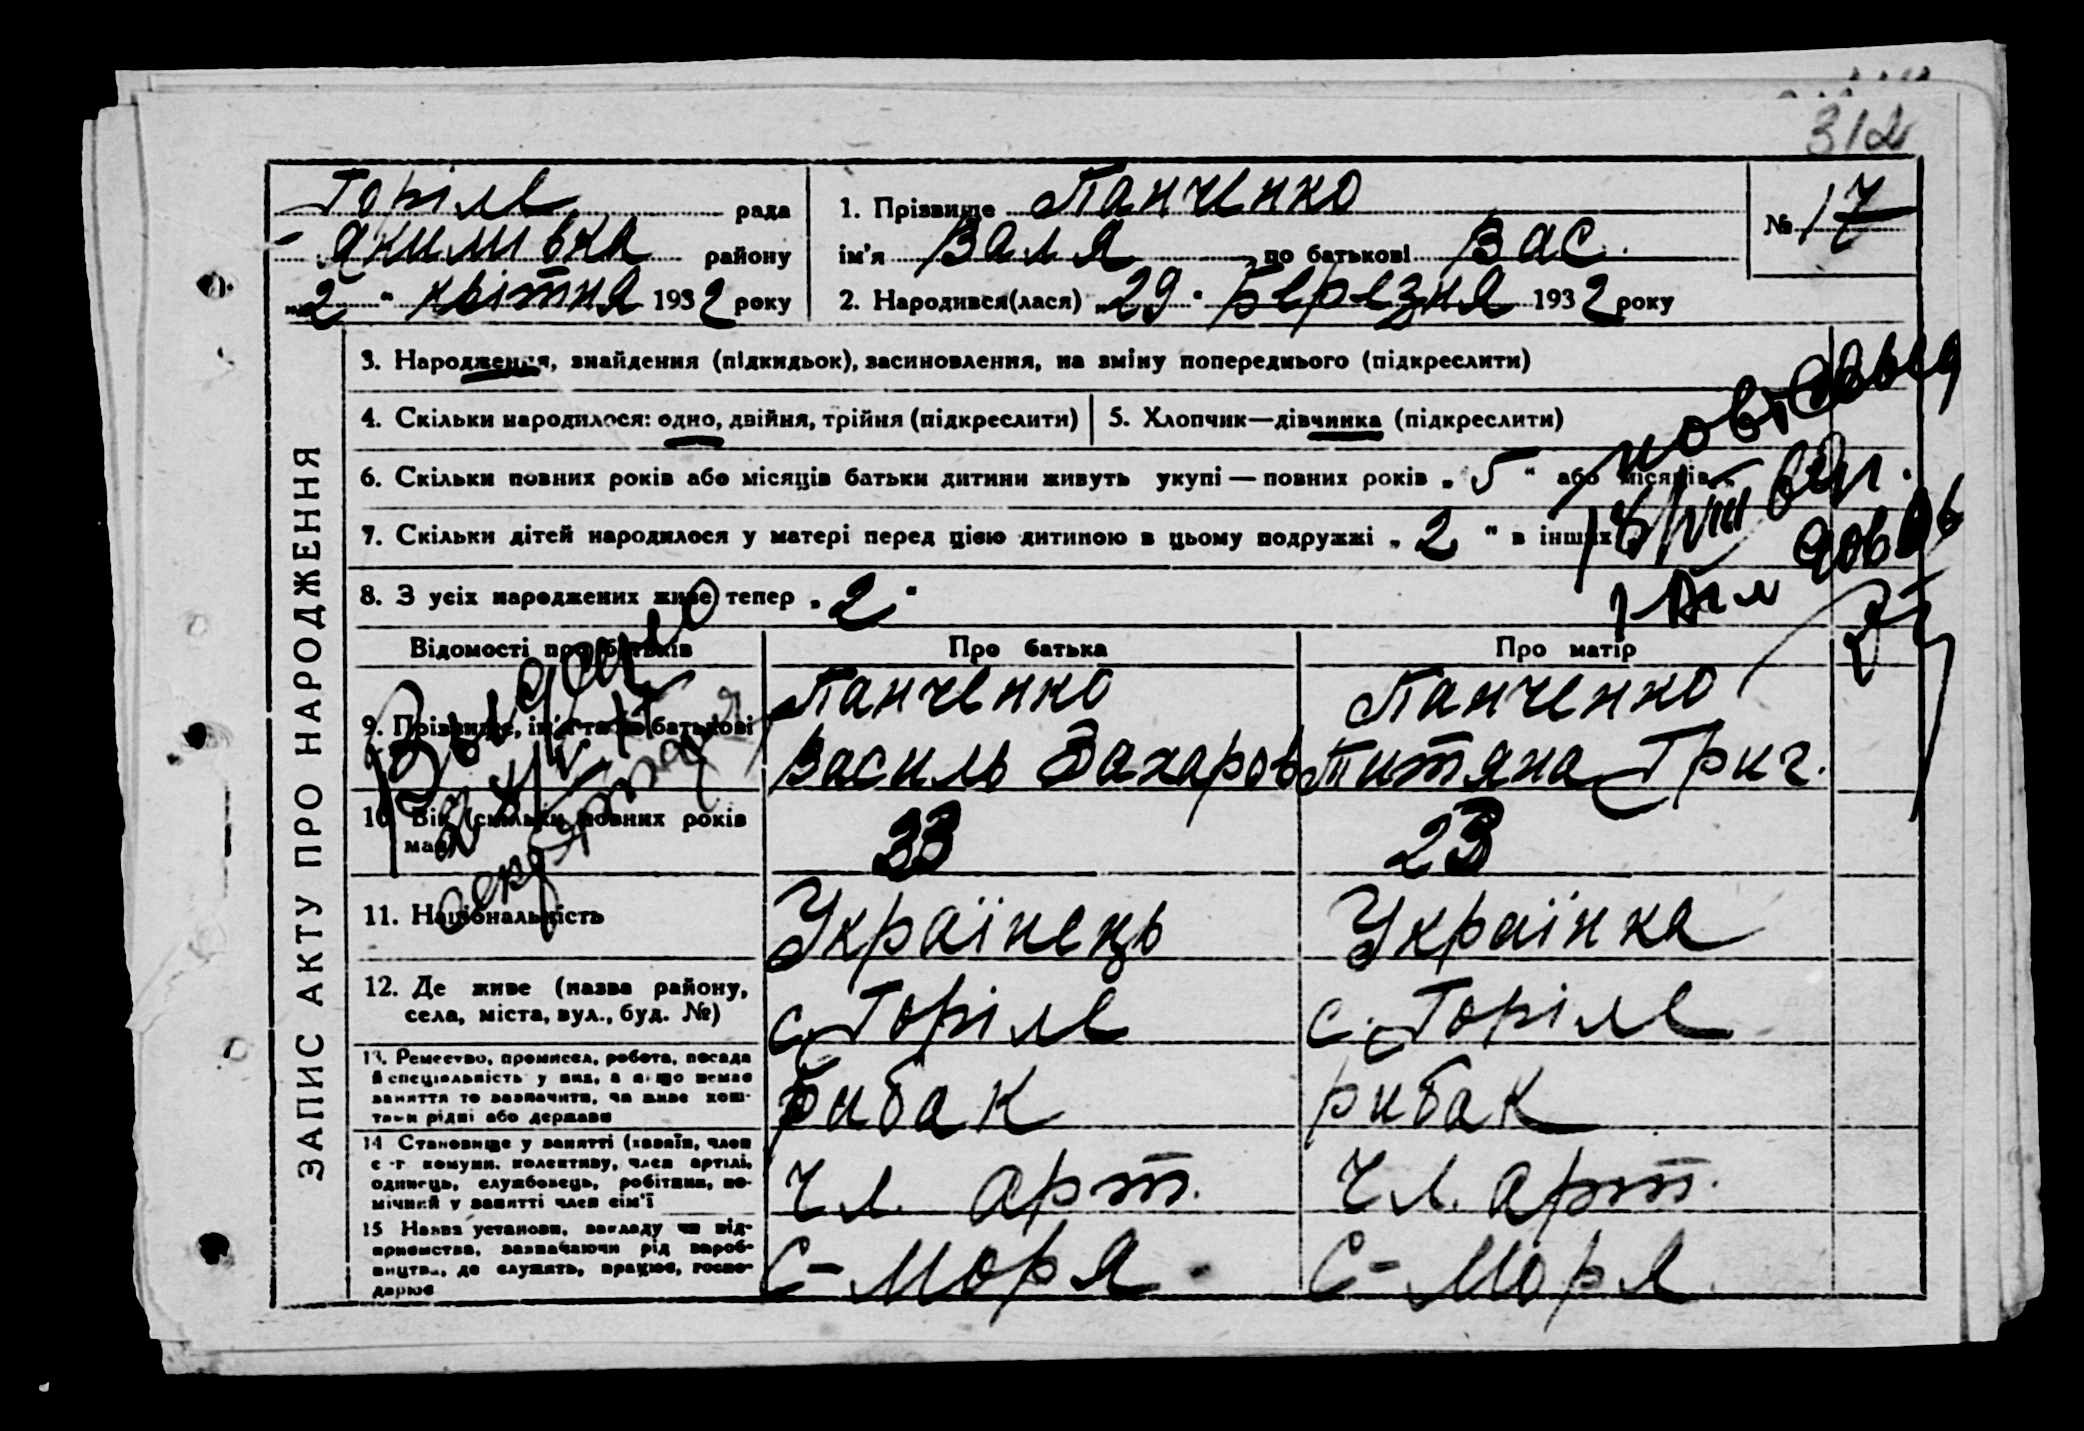 312
Горіле рада
Якимівка району
„2“ квітня 1932 року
1. Прізвище Панченко
ім'я Валя по батькові Вас.
2. Народився(лася) „29“ Березня 1932 року
№ 17
ЗАПИС АКТУ ПРО НАРОДЖЕННЯ
3. Народження, знайдення (підкидьок), засиновлення, на зміну попереднього (підкреслити)
4. Скільки народилося: одно, двійня, трійня (підкреслити)
5. Хлопчик—дівчинка (підкреслити)
6. Скільки повних років або місяців батьки дитини живуть укупі — повних років „5“ або місяців „
7. Скільки дітей народилося у матері перед цією дитиною в цьому подружжі „2“ в інших
8. З усіх народжених живе тепер „2“
Відомості про батьків
Про батька
Про матір
9. Прізвище, ім'я та по батькові
Панченко
Василь Захаров
Панченко
Титяна Григ.
10. Вік (скільки повних років має)
33
23
11. Національність
Українець
Українка
12. Де живе (назва району,
села, міста, вул., буд. №)
с. Горіле
с. Горіле
13. Ремество, промисел, робота, посада
й спеціяльність у них, а якщо немає
заняття то зазначити, на чиї кош-
рідні або держави
рибак
рибак
14 Становище у занятті (хазяїн, член
с-г комуни, колективу, член артілі,
одинець, службовець, робітник, по-
мічний у занятті член сім'ї
чл. арт.
чл. арт.
15 Назва установи, закладу чи під-
приємства, зазначаючи рід вироб-
ництва, де служить, працює, госпо-
дарює
С-Моря
С-Моря